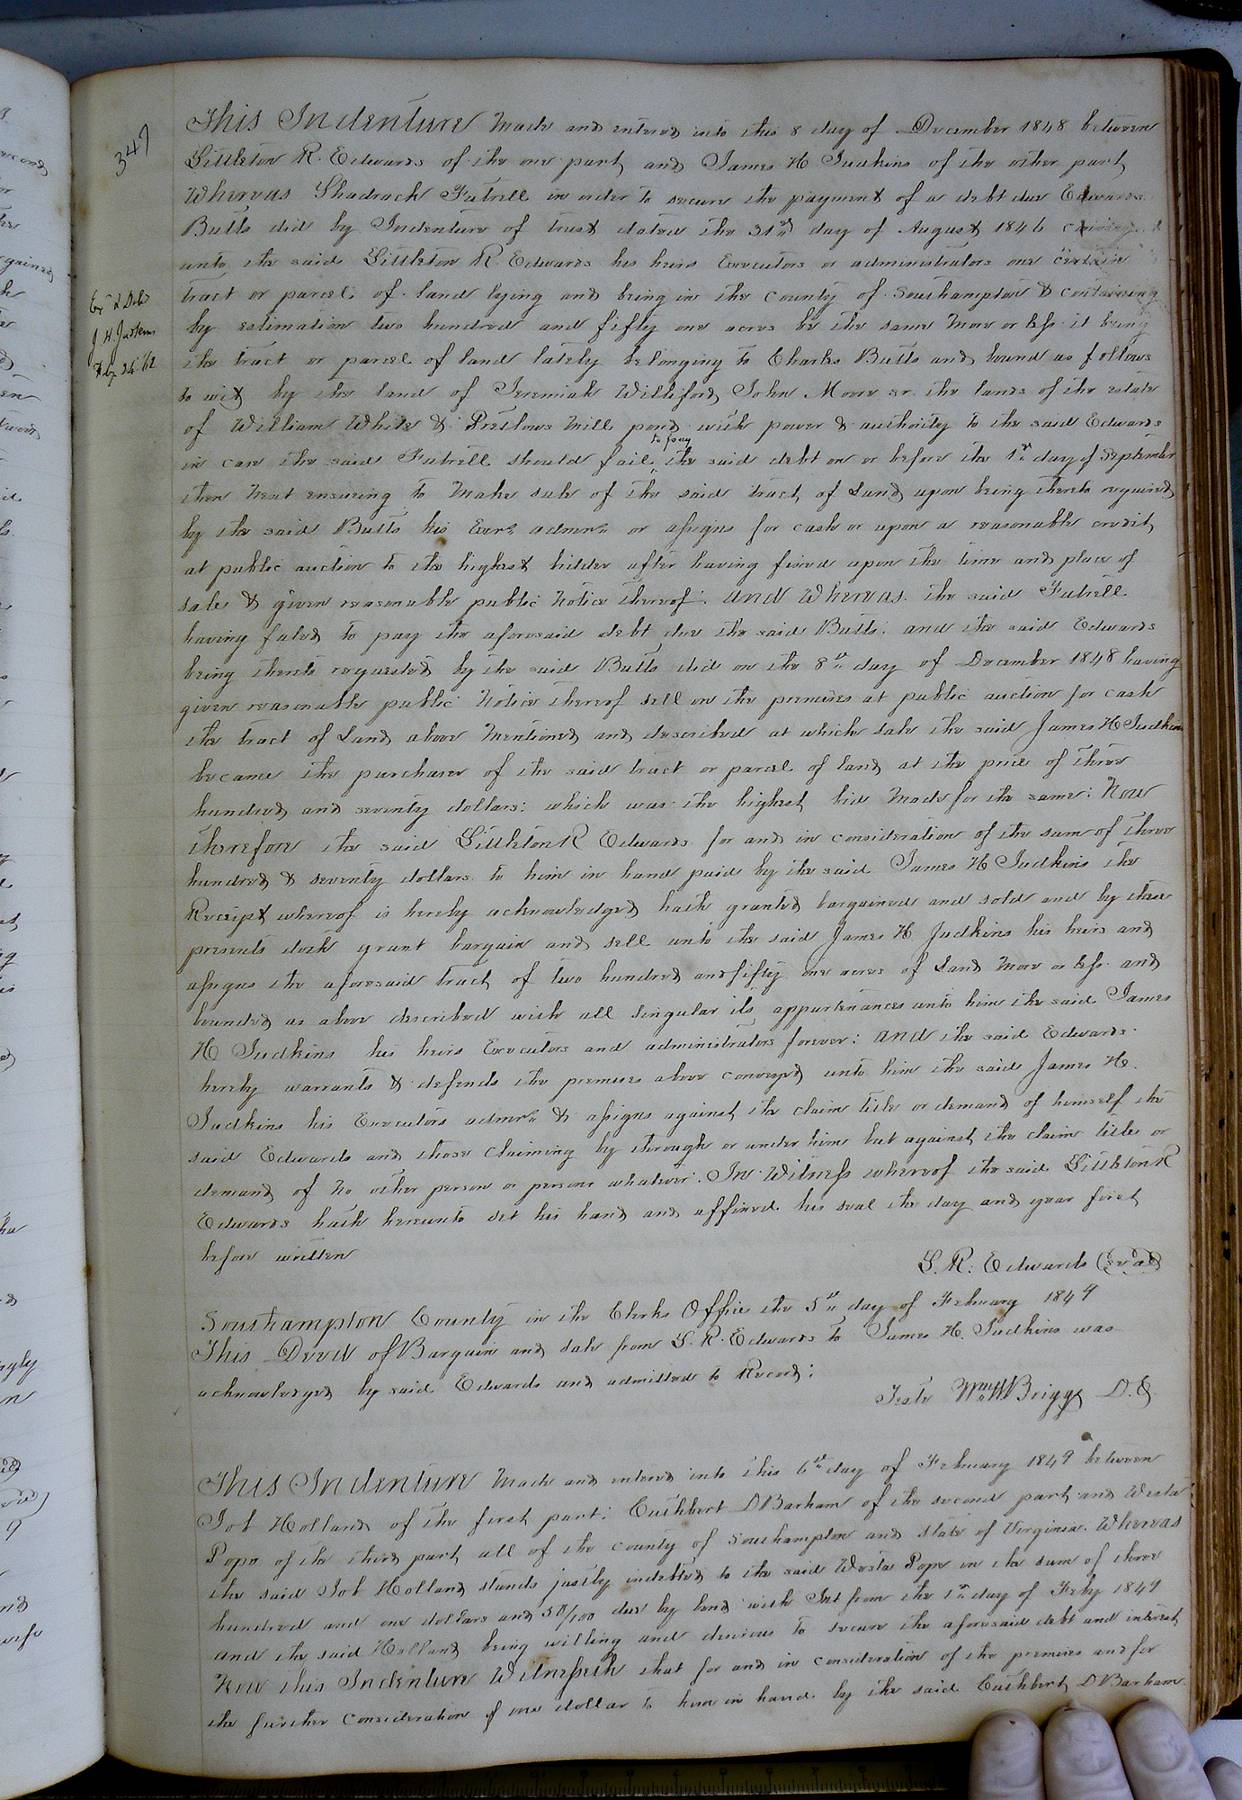 349
This Indenture Made and entered into this 8 day of December 1848 between
Littleton R. Edwards of the one part, and James H Judkins of the other part,
Whereas Shadrack Futrell in order to secure the payment of a debt due Edwards
Butts did by Indenture of trust dated the 31st day of August 1846
unto the said Littleton R. Edwards his heirs Executors or administrators one certain
tract or parcel of land lying and being in the County of Southampton & containing
by estimation two hundred and fifty one acres be the same More or less it being
the tract or parcel of land lately belonging to Charles Butts and bound as follows
to wit by the land of Jeremiah Williford, John Moore sr. the lands of the estate
of William White & Presllows Mill pond with power & authority to the said Edwards
in case the said Futrell should fail to pay the said debt on or before the 1st day of September
then Next ensuing to Make sale of the said tract of Land upon being thereto required
by the said Butts his Exrs admrs or assigns for cash or upon a reasonable credit,
at public auction to the highest bidder after having fixed upon the time and place of
sale & given reasonable public Notice thereof: and Whereas the said Futrell
having faled to pay the aforesaid debt due the said Butts: and the said Edwards
being thereto requested by the said Butts did on the 8th day of December 1848 having
given reasonable public Notice thereof sell on the premises at public auction for cash
the tract of Land above Mentioned and described at which sale the said James H Judkins
became the purchaser of the said tract or parcel of land at the price of three
hundred and seventy dollars: which was the highest bid Made for the same: Now
therefore the said Littleton R Edwards for and in consideration of the sum of three
hundred & seventy dollars to him in hand paid by the said James H Judkins the
Receipt whereof is hereby acknowledged hath granted bargained and sold and by these
presents doth grant bargain and sell unto the said James H Judkins his heirs and
assigns the aforesaid tract of two hundred and fifty one acres of Land More or less and
bounded as above described with all singular its appurtenances unto him the said James
H Judkins his heirs Executors and administrators forever: and the said Edwards
hereby warrants & defends the premises above conveyed unto him the said James H.
Judkins his Executors admrs & assigns against the claim title or demand of himself the
said Edwards and those claiming by through or under him but against the claim title or
demand of No other person or persons whatever: In Witness whereof the said Littleton R
Edwards hath hereunto set his hand and affixed his seal the day and year first
before written
L. R. Edwards (Seal)
Southampton County in the Clerks Office the 5th day of February 1849
This Deed of Bargain and sale from L. R. Edwards to James H. Judkins was
acknowledged by said Edwards and admitted to Record:
Teste Wm W Briggs D.C.
This Indenture Made and entered into this 6th day of February 1849 between
Job Holland of the first part: Cuthbert D Barham of the second part and Westa
Pope of the third part, all of the county of Southampton and state of Virginia. Whereas
the said Job Holland stands justly indebted to the said Westa Pope in the sum of three
hundred and one dollars and 50/100 due by bond with Int from the 1st day of Feby 1849
and the said Holland being willing and desirous to secure the aforesaid debt and interest,
Now this Indenture Witnesseth that for and in consideration of the premises and for
the further Consideration of one dollar to him in hand by the said Cuthbert D Barham